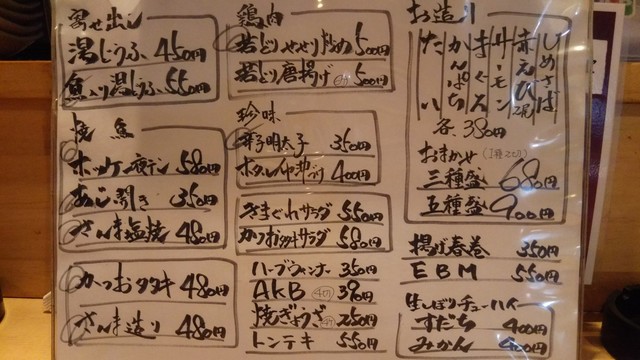 寄せ出し
湯どうふ 450円
魚入り湯どうふ 550円
焼魚
ホッケ一夜干し 580円
あじ開き 350円
さんま塩焼 480円
かつおタタキ 480円
さんま造り 480円
鶏肉
若どりせせり炒め 500円
若どり唐揚げ 500円
珍味
辛子明太子 350円
ホタルイカ沖漬け 400円
きまぐれサラダ 550円
かつおタタキサラダ 580円
ハーブウィンナー 350円
AKB 390円
焼ぎょうざ 250円
トンテキ 550円
お造り
しめさば
赤えび 2尾
サーモン
まぐろ
かんぱち
たい
各.380円
おまかせ
三種盛 680円
五種盛 900円
揚げ春巻 350円
EBM 550円
生しぼりチューハイ
すだち 400円
みかん 400円